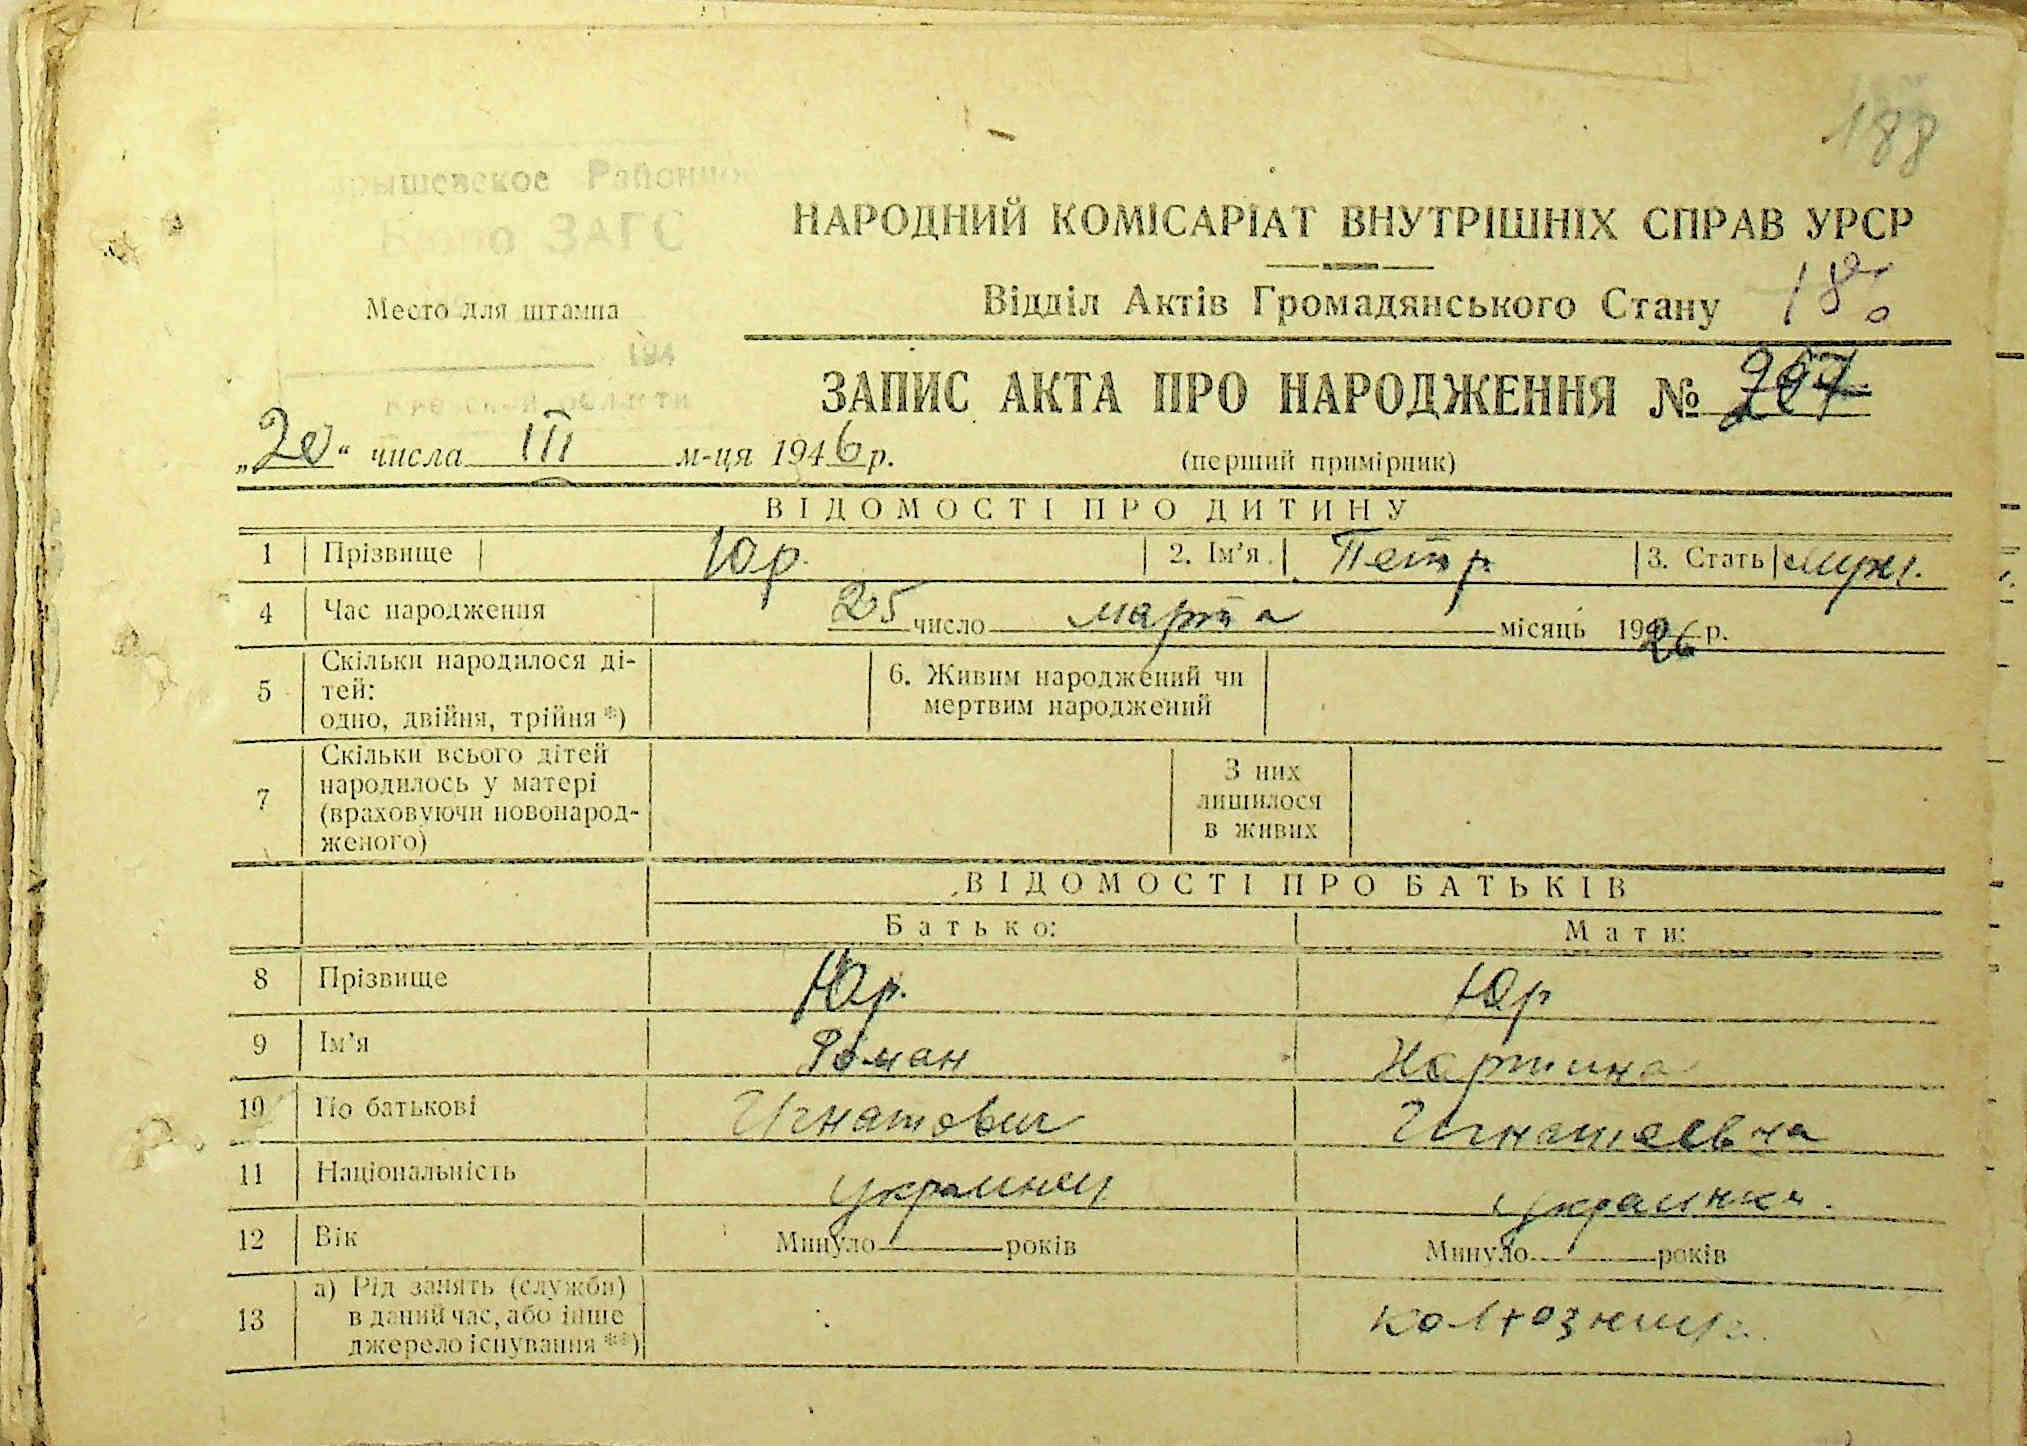 188
Районно
ЗАГС
НАРОДНИЙ КОМІСАРІАТ ВНУТРІШНІХ СПРАВ УРСР
Відділ Актів Громадянського Стану
Место для штампа
194
ЗАПИС АКТА ПРО НАРОДЖЕННЯ №
„20“ числа III м-ця 1946 р.
(перший примірник)
ВІДОМОСТІ ПРО ДИТИНУ
1 Прізвище Юр. 2. Ім’я Петр. 3. Стать муж.
4 Час народження 25 число марта місяць 1926 р.
5 Скільки народилося ді-
тей:
одно, двійня, трійня *)
6. Живим народжений чи
мертвим народжений
7 Скільки всього дітей
народилось у матері
(враховуючи новонарод-
женого)
З них
лишилося
в живих
ВІДОМОСТІ ПРО БАТЬКІВ
Батько: Мати:
8 Прізвище Юр. Юр
9 Ім’я Роман
10 По батькові Игнатович Игнатеевна
11 Національність украинец украинка.
12 Вік Минуло років Минуло років
13 а) Рід занять (служби)
в даний час, або інше
джерело існування **)
колхозница